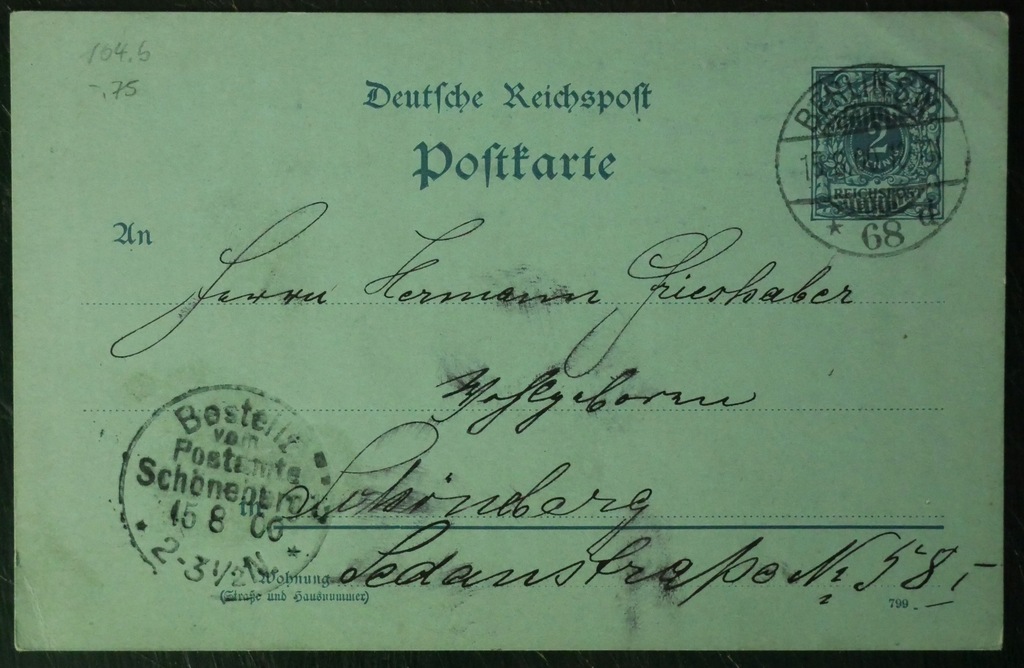 104.5
-.75
Deutsche Reichspost
Postkarte
BERLIN S.W.
2
REICHSPOST
* 68 d
An
Herrn Hermann Grieshaber
Wohlgeboren
Bestellt
vom
Postamte
Schöneberg
15 8 00
* 2-3½N. *
in Schöneberg
Wohnung Sedanstraße № 58,-
(Straße und Hausnummer)
799